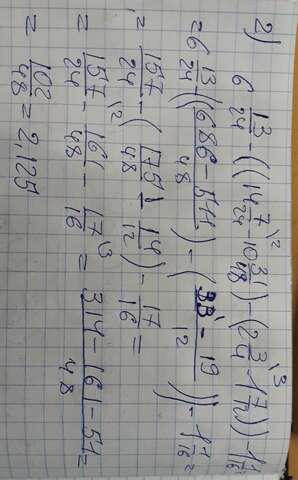 2) 6 13/24 - ((14 7/24 \2 - 10 31/48) - (2 3/4 \3 - 1 7/12)) - 1 1/16 =
= 6 13/24 - ((686 - 511)/48) - ((33 - 19)/12)) - 1 1/16 =
= 157/24 - (175/48 \1 - 14/12) - 17/16 =
= 157/24 \2 - 161/48 - 17/16 \3 = (314 - 161 - 51)/48 =
= 102/48 = 2,125